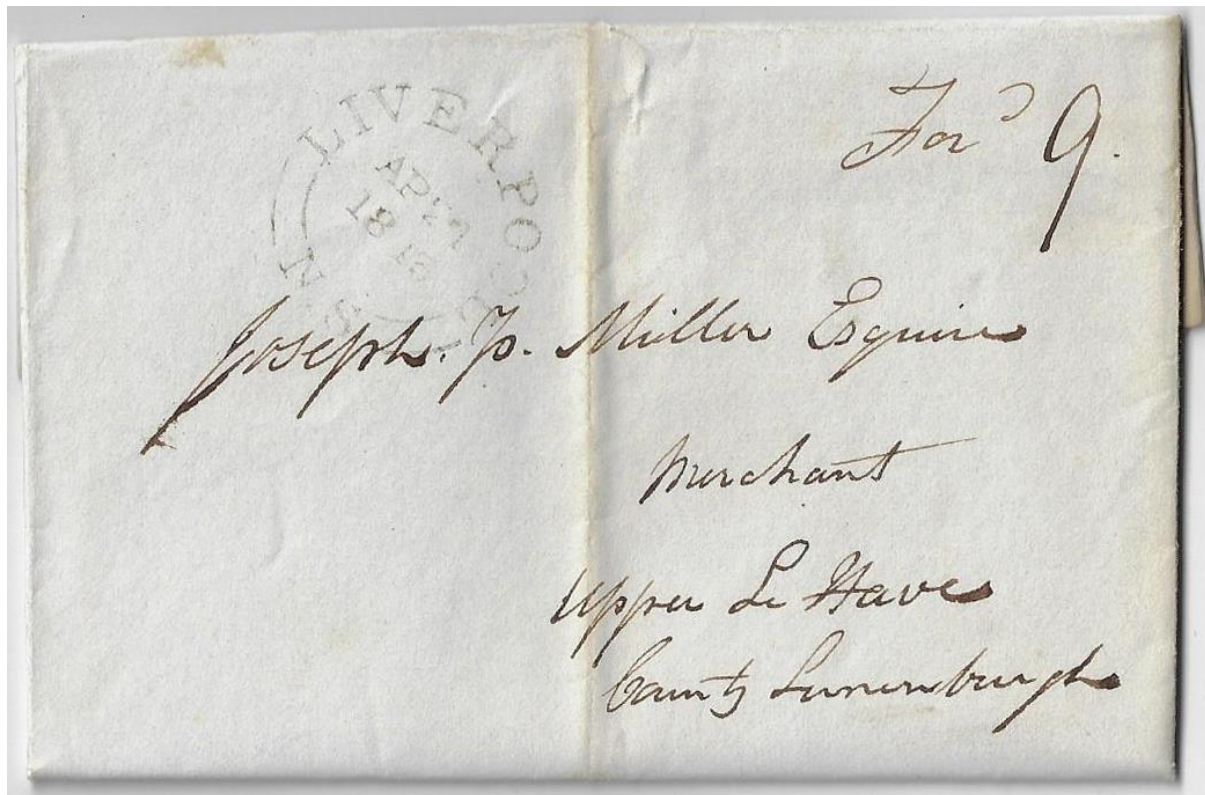 LIVERPOOL
AP 27
18
N.S
For^d 9.
Joseph. P. Miller Esquire
Merchant
Upper Le Have
County Lunenburgh